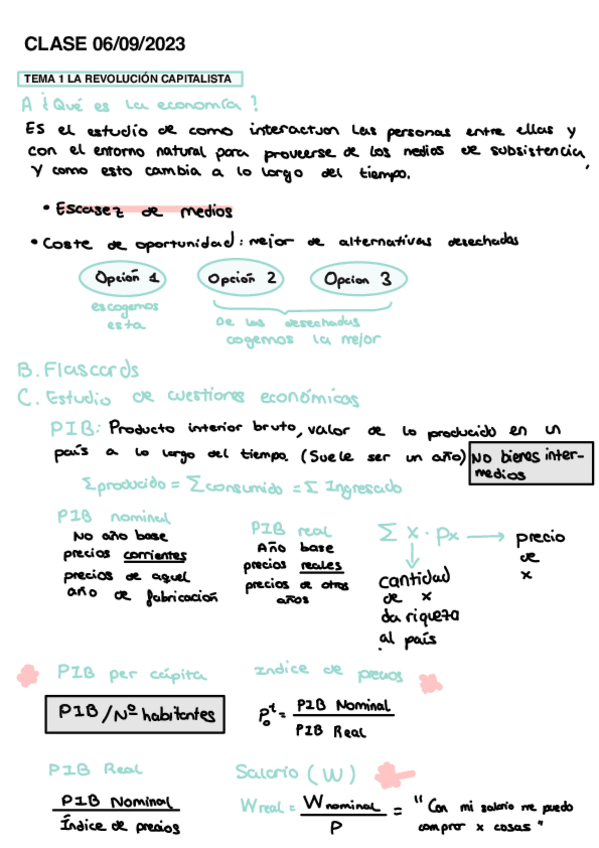 CLASE 06/09/2023
TEMA 1 LA REVOLUCIÓN CAPITALISTA
A ¿Qué es la economía?
ES el estudio de como interactuan las personas entre ellas y
con el entorno natural para proveerse de los medios de subsistencia,
y como esto cambia a lo largo del tiempo.
• Escasez de medios
• Coste de oportunidad: mejor de alternativas desechadas
Opción 1 Opción 2 Opcion 3
escogemos
esta
De las desechadas
cogemos la mejor
B. Flascards
C. Estudio de cuestiones económicas
PIB: Producto interior bruto, valor de lo producido en un
país a lo largo del tiempo. (Suele ser un año) NO bienes inter-
medios
Σproducido = Σconsumido = Σ Ingresado
PIB nominal
No año base
precios corrientes
precios de aquel
año de fabricación
PIB real
Año base
precios reales
precios de otros
años
Σ x · px → precio
de
x
cantidad
de x
da riqueza
al país
PIB per cápita
PIB/Nº habitantes
Indice de precios
P₀ᵗ = PIB Nominal
PIB Real
PIB Real
PIB Nominal
Índice de precios
Salario (W)
W real = W nominal = "Con mi salario me puedo
P
comprar x cosas"